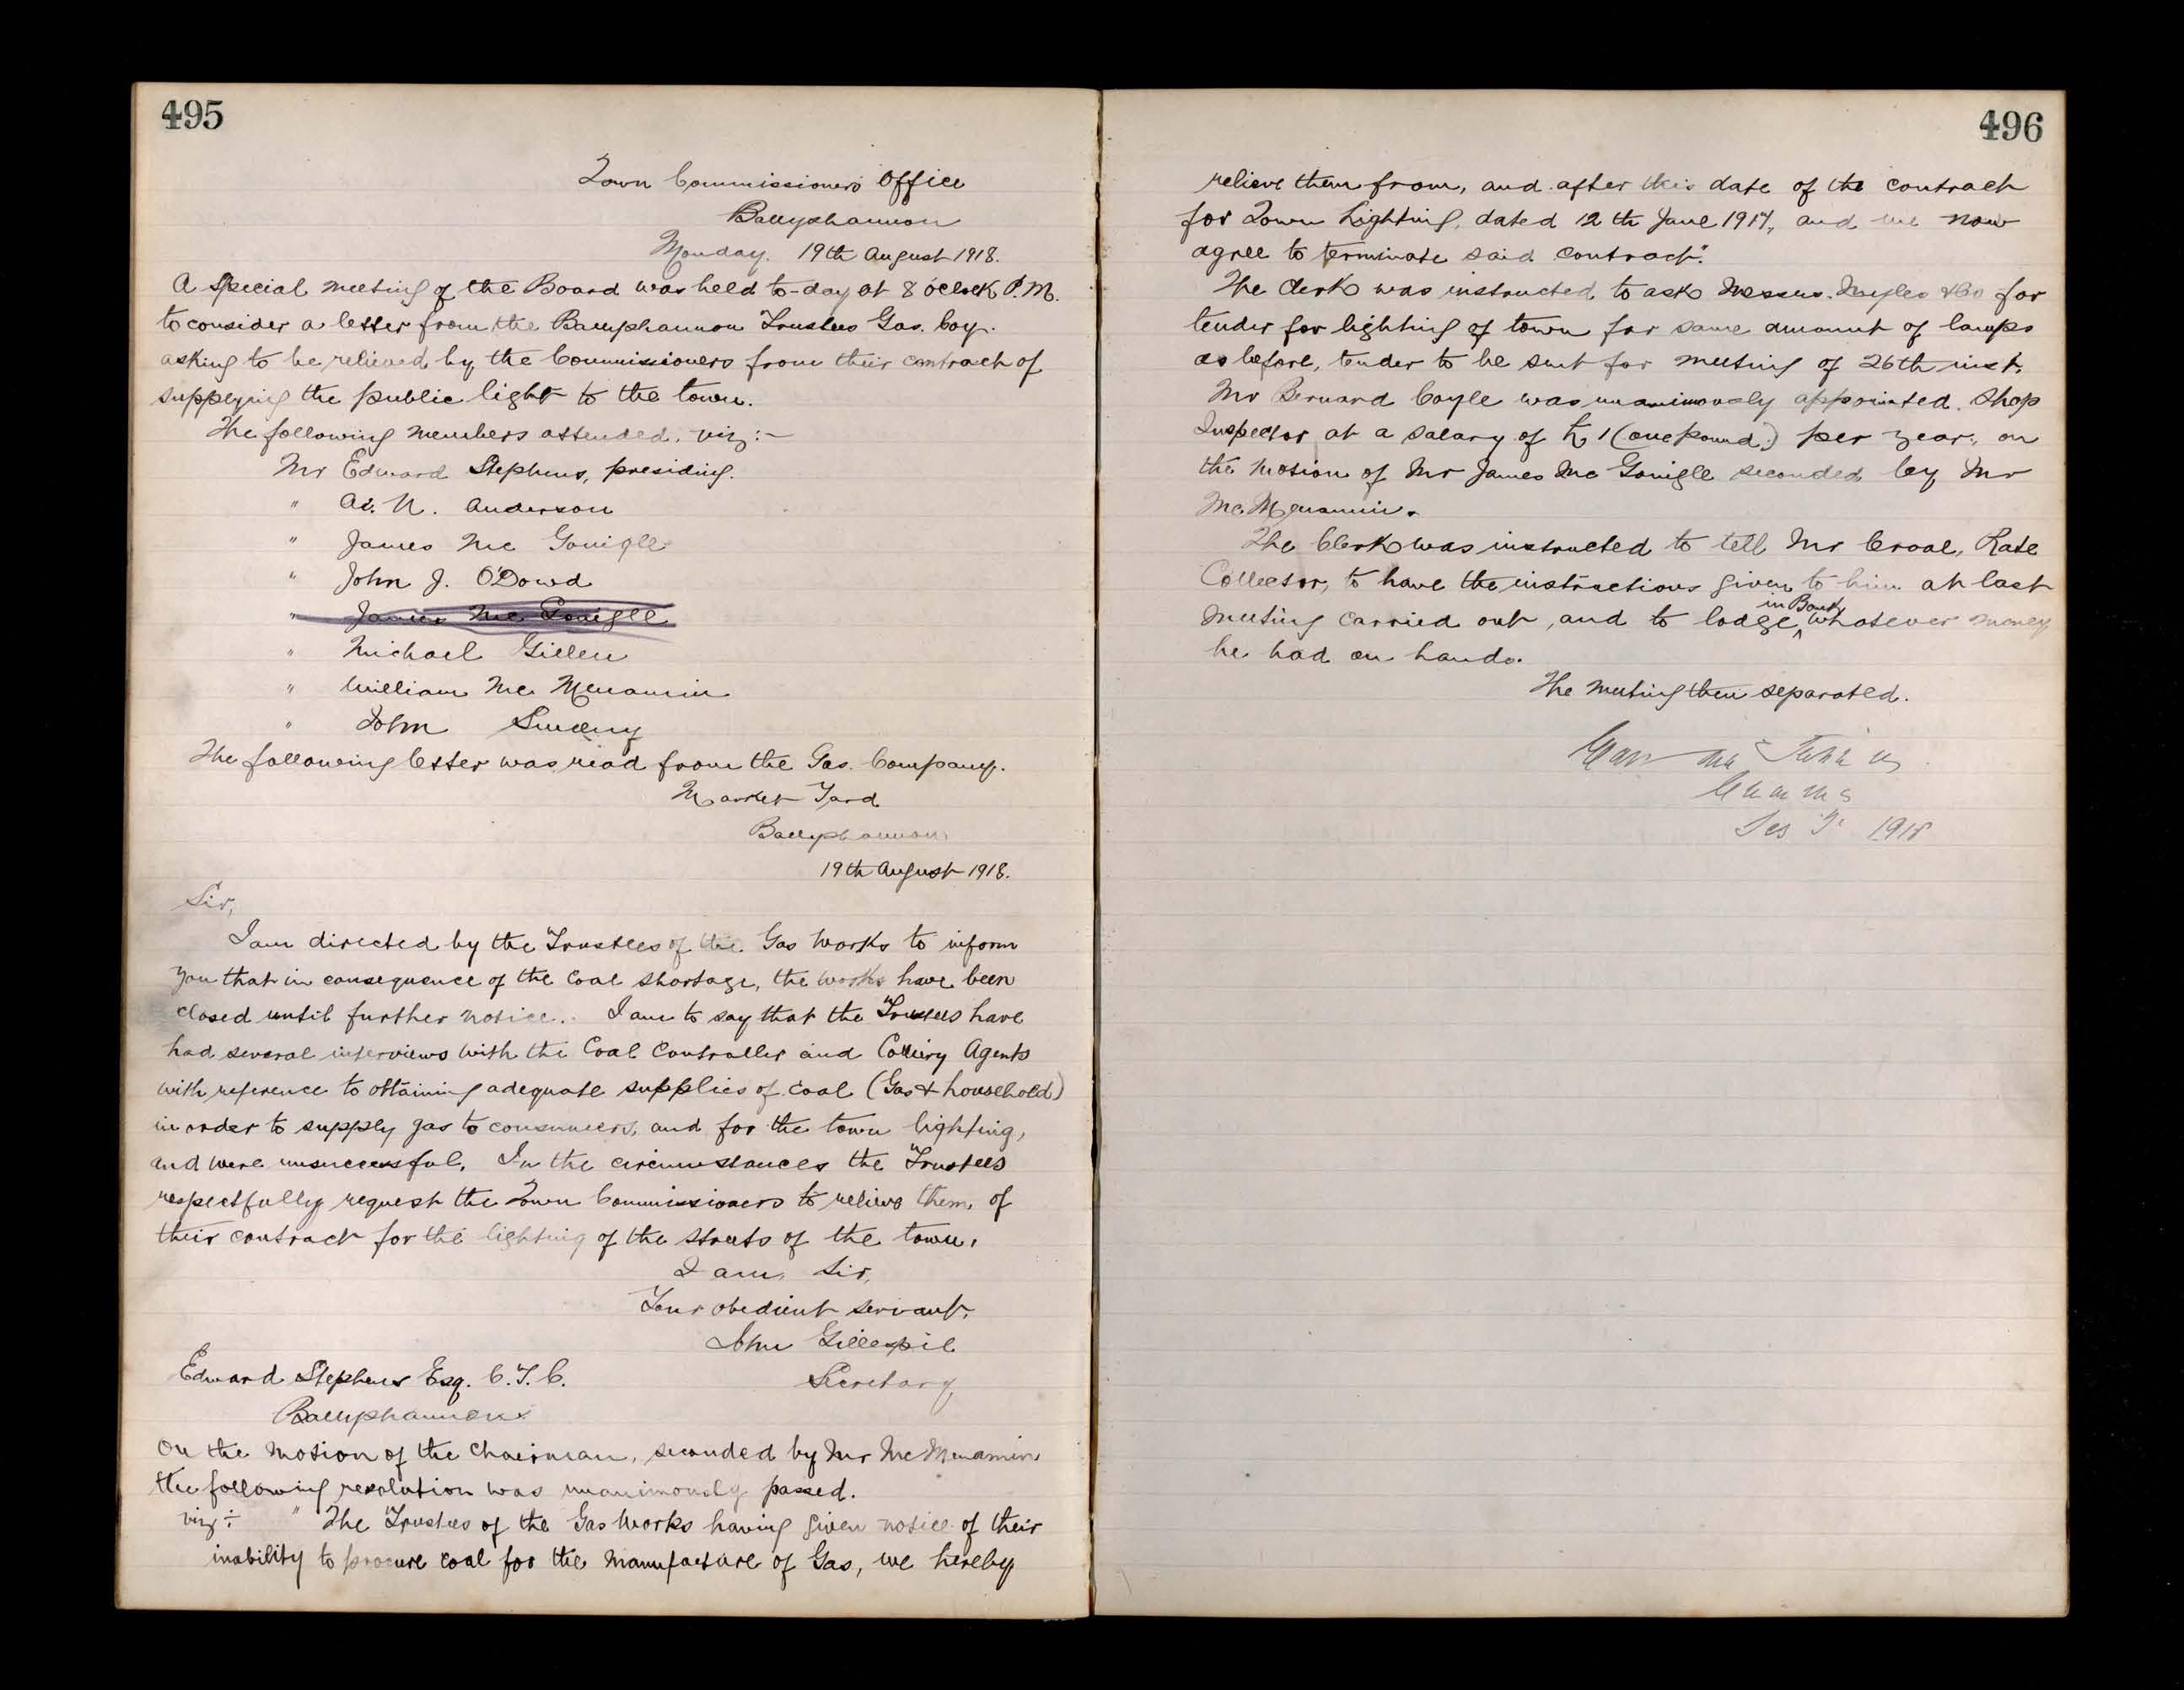 495
Town Commissioners Office
Ballyshannon
Monday. 19th August 1918.
A Special meeting of the Board was held to-day at 8 o'clock P.M.
to consider a letter from the Ballyshannon Trustees Gas. Coy.
asking to be relieved by the Commissioners from their contract of
supplying the public light to the town.
The following members attended, viz:-
Mr Edward Stephens, presiding.
" N. Anderson
" James Mc Gonigle
" John J. O'Dowd
" James Mc Gonigle
" Michael Gillen
" William Mc Menamin
" John Sweeny
The following letter was read from the Gas. Company.
Market Yard
Ballyshannon
19th August 1918.
Sir,
I am directed by the Trustees of the Gas Works to inform
you that in consequence of the coal shortage, the works have been
closed until further notice. I am to say that the Trustees have
had several interviews with the Coal Controller and Colliery Agents
with reference to obtaining adequate supplies of coal (Gas & household)
in order to supply gas to consumers, and for the town lighting,
and were unsuccessful. In the circumstances the Trustees
respectfully request the Town Commissioners to relieve them, of
their contract for the lighting of the streets of the town.
I am, Sir,
Your obedient servant,
John Gillespie
Secretary
Edward Stephens Esq. C.T.C.
Ballyshannon
On the motion of the Chairman, seconded by Mr Mc Menamin
the following resolution was unanimously passed.
viz:- "The Trustees of the Gas Works having given notice of their
inability to procure coal for the manufacture of Gas, we hereby
496
relieve them from, and after this date of the contract
for Town Lighting, dated 12th June 1917, and we now
agree to terminate said contract."
The Clerk was instructed to ask Messrs. Myles & Co for
tender for lighting of town for same amount of lamps
as before, tender to be sent for meeting of 26th inst.
Mr Bernard Coyle was unanimously appointed Shop
Inspector at a salary of £1 (one pound) per year, on
the motion of Mr James Mc Gonigle seconded by Mr
Mc. Menamin.
The Clerk was instructed to tell Mr Croal, Rate
Collector, to have the instructions given to him at last
meeting carried out, and to lodge in Bank whatever money
he had on hands.
The meeting then separated.
1918